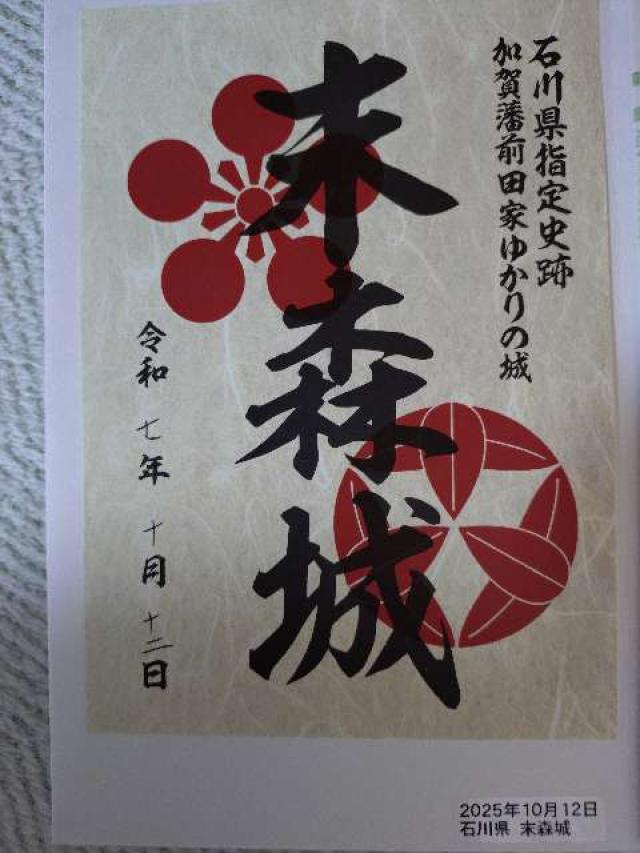 石川県指定史跡
加賀藩前田家ゆかりの城
末森城
令和 七年 十月 十二日
2025年10月12日
石川県 末森城